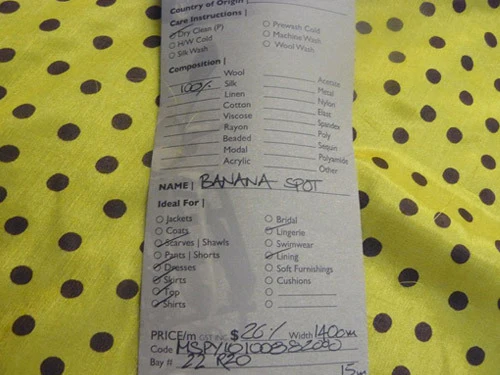 Country of Origin |
Care Instructions |
Dry Clean (P)
Prewash Cold
H/W Cold
Machine Wash
Silk Wash
Wool Wash
Composition |
Wool
Acetate
100% Silk
Metal
Linen
Nylon
Cotton
Elast
Viscose
Spandex
Rayon
Poly
Beaded
Sequin
Modal
Polyamide
Acrylic
Other
NAME | BANANA SPOT
Ideal For |
Jackets
Bridal
Coats
Lingerie
Scarves | Shawls
Swimwear
Pants | Shorts
Lining
Dresses
Soft Furnishings
Skirts
Cushions
Top
Shirts
PRICE/m GST INC $ Width 140cm
Code
Bay # 22 R20
15m